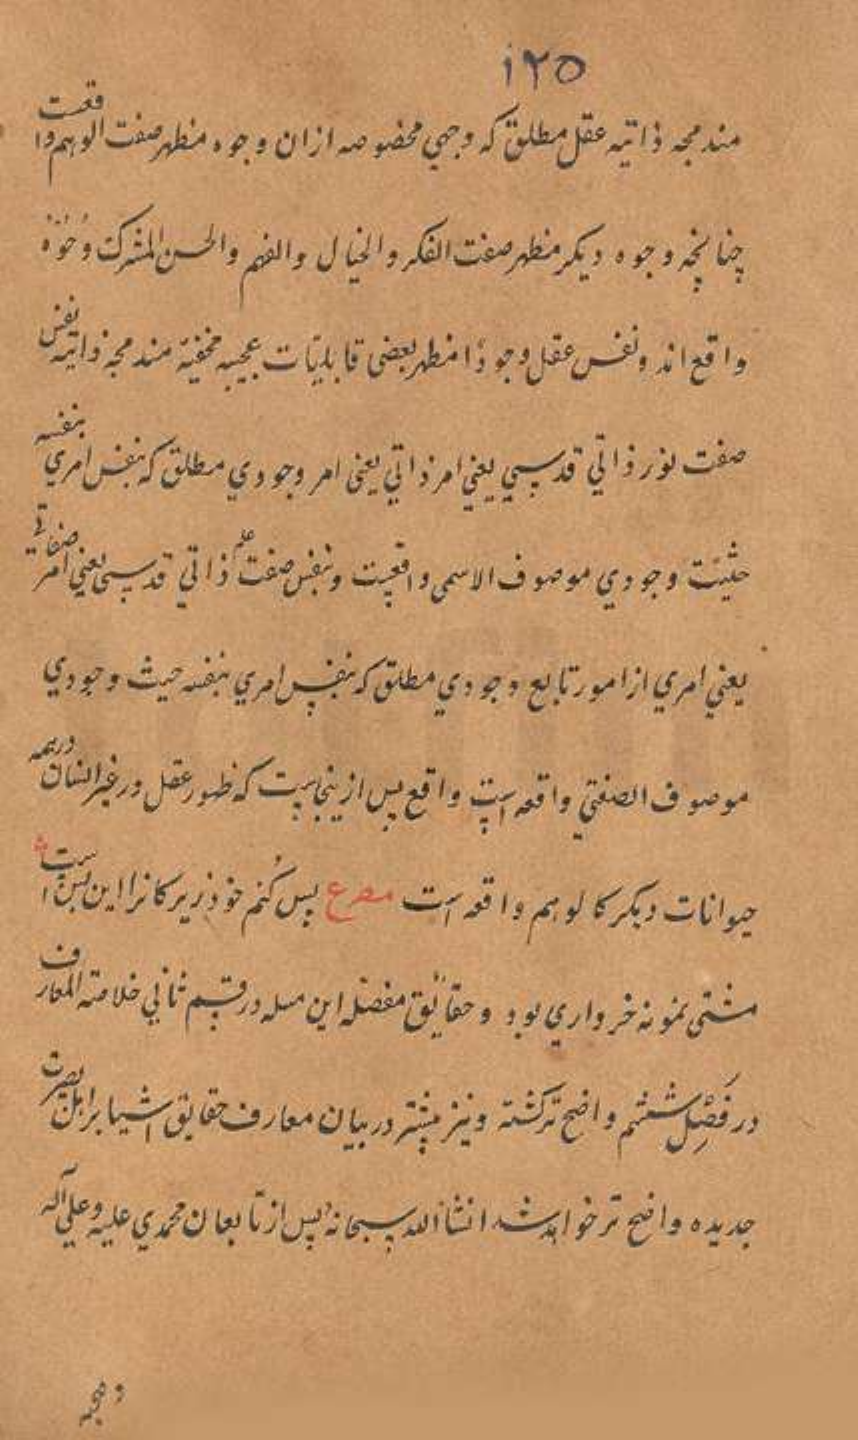 ۱۲۵
مندمجه ذاتیه عقل مطلق که وجهي مخصوصه ازان وجوه منظهر صفت الوهم واقعست
چنانچه وجوه دیکر منظهر صفت الفکر والخیال والفهم والحس المشترک ونحوه
واقع اند ونفس عقل وجودًا منظهر بعضی قابلیّات عجیبه مخفیّه مندمجه ذاتیه نفس
صفت نور ذاتي قدسي یعني امر ذاتي یعنی امر وجودي مطلق که بنفس امري بنفسه
حیثیّت وجودي موصوف الاسمی واقعیست وبنفس صفت علم ذاتي قدسی یعني امر صفاتي
یعني امري از امور تابع وجودي مطلق که بنفس امري بنفسه حیث وجودي
موصوف الصفتي واقعه است واقع پس ازینجاست که ظهور عقل در غیر انسان در همه
حیوانات دیکر کالوهم واقعه است مصرع پس کُنم خود زیرکانرا این بس است
مشتی نمونه خرواري بود وحقایٔق مفصّله این مسله در قسم ثاني خلاصة المعارف
در فَصْلِ ششم واضح ترکشته ونیز پیشتر در بیان معارف حقایق اشیا بر اهل بصیرت
جدیده واضح تر خواهد شد انشأالله سبحانه پس از تابعان محمدي علیه وعلي آله